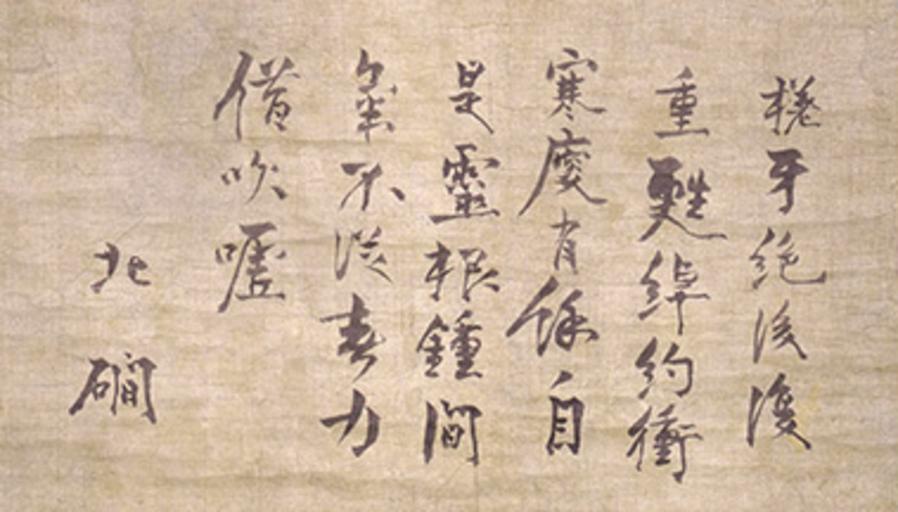 棬牙絶後復
重甦綽約衝
寒慶有餘自
是靈根鍾間
氣不從春力
借吹噓
北磵